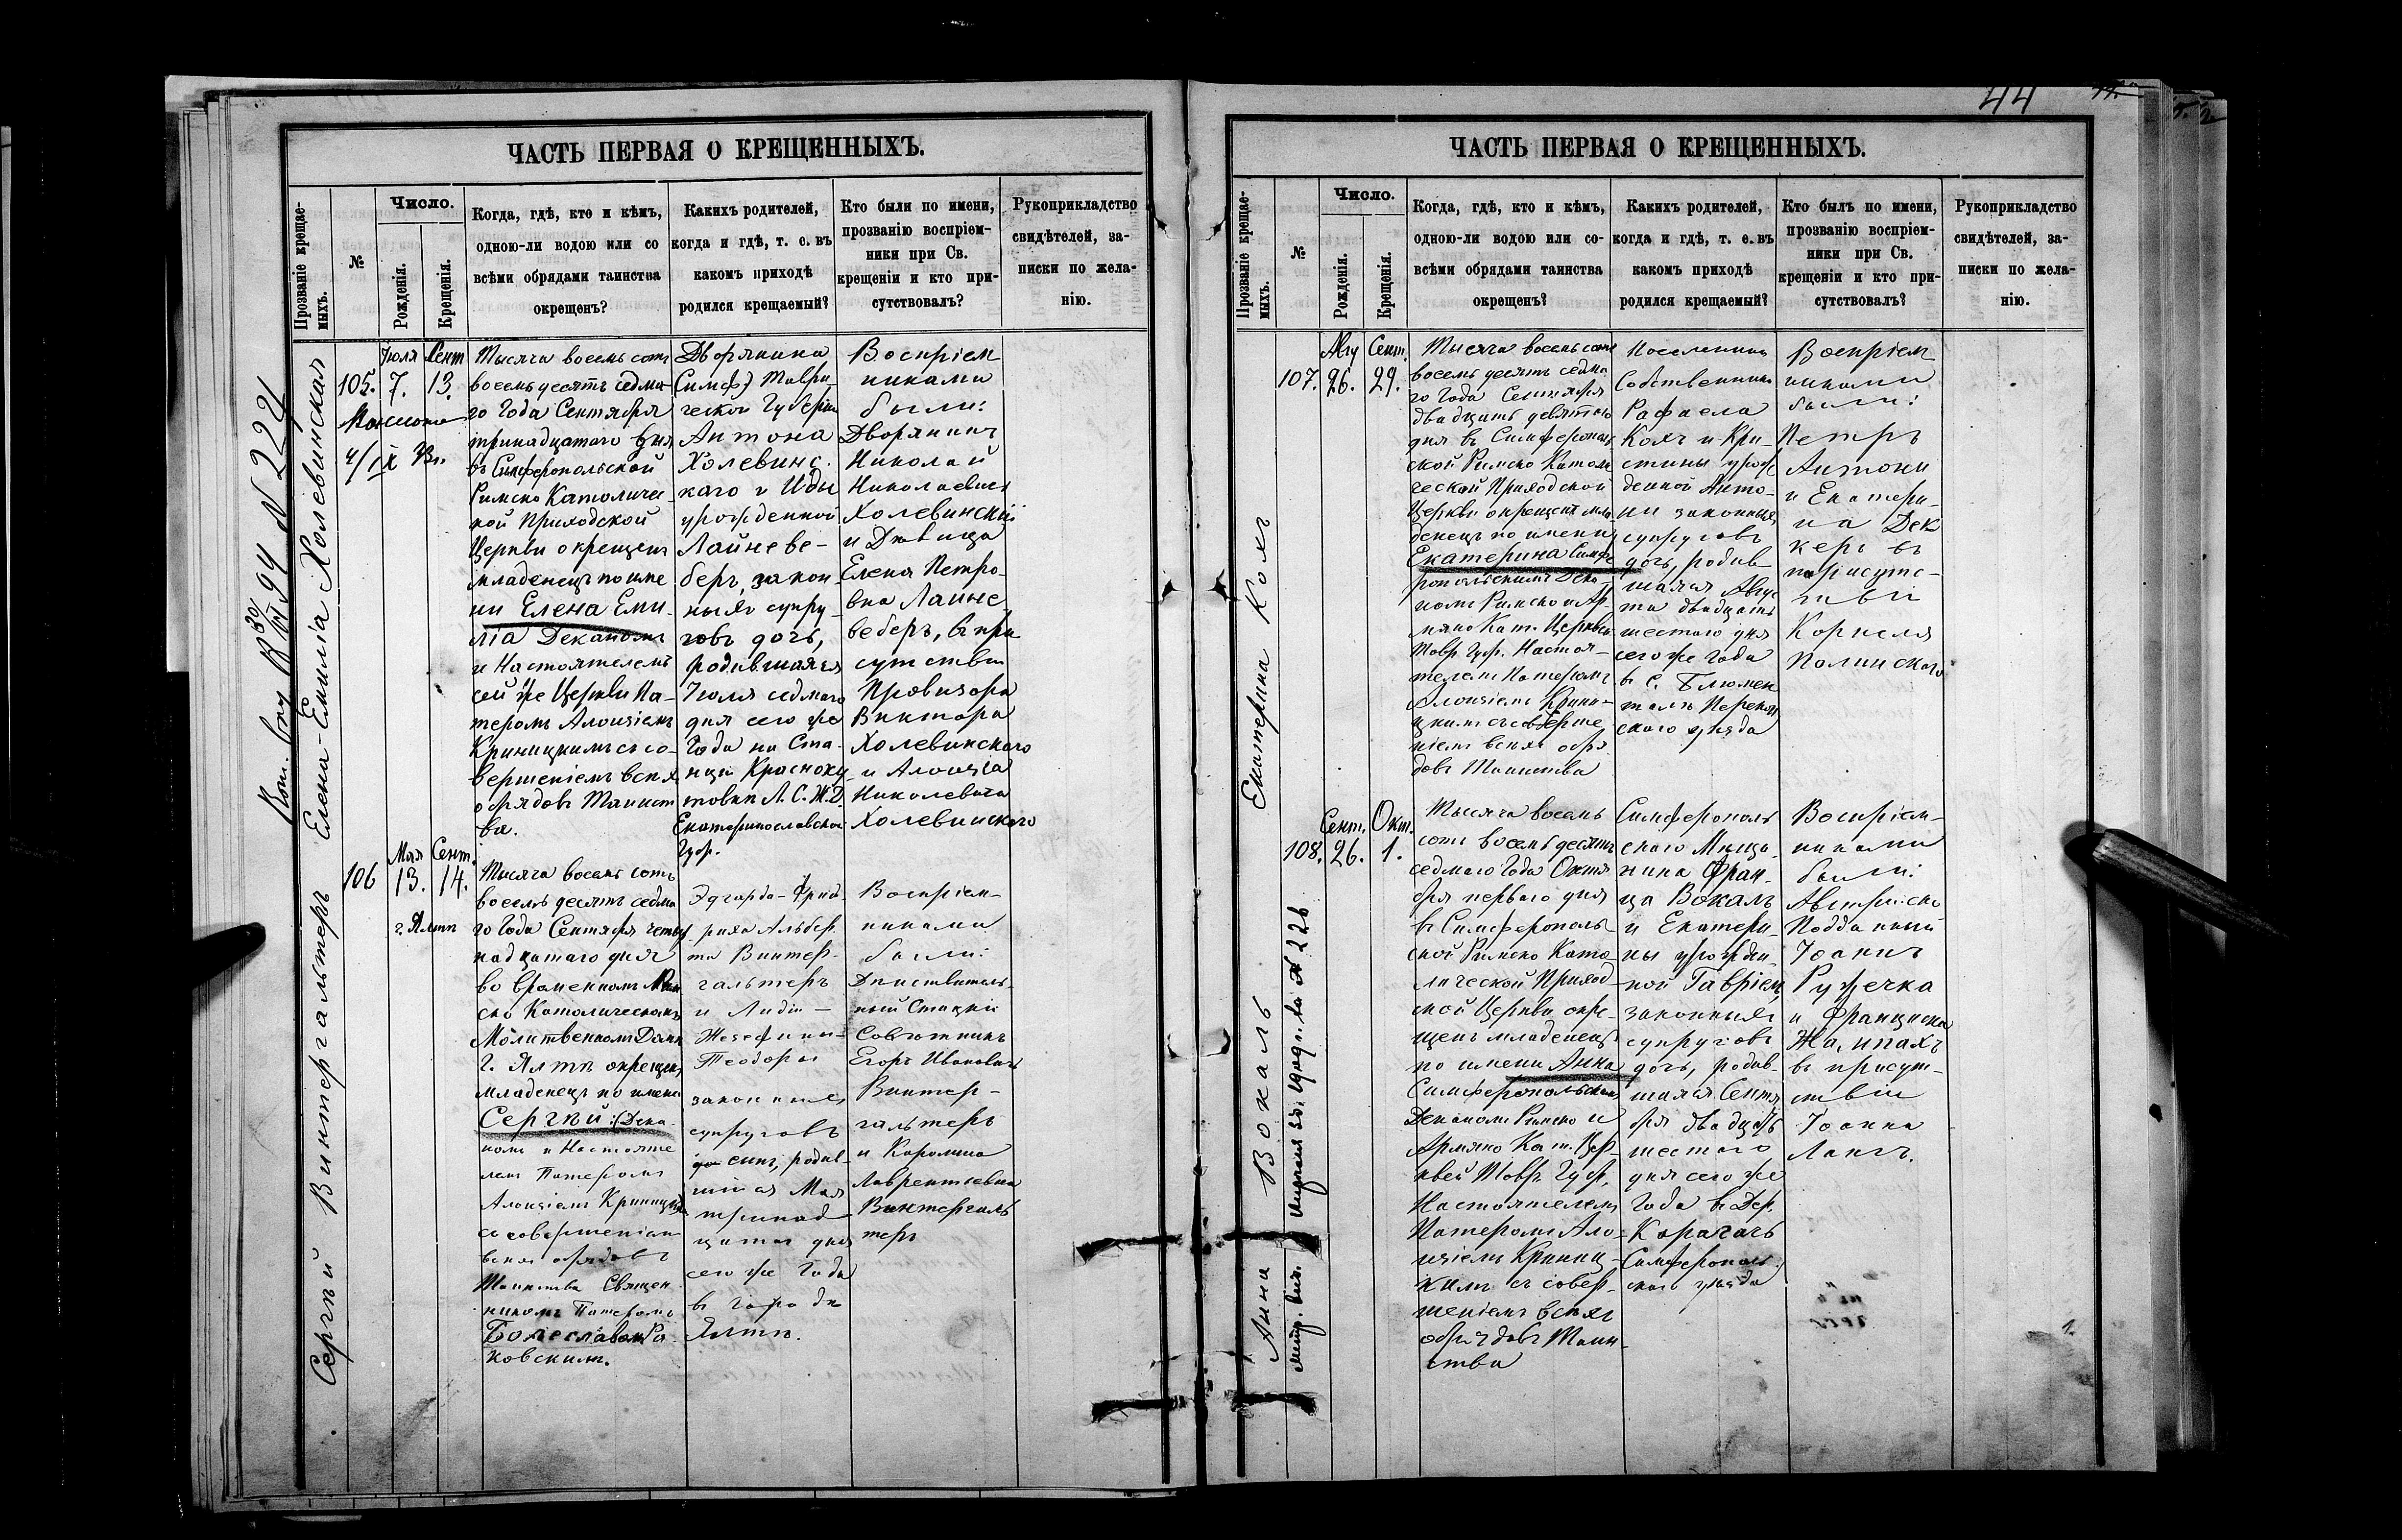 ЧАСТЬ ПЕРВАЯ О КРЕЩЕННЫХЪ.
Прозваніе крещае-
мыхъ.
№
Число.
Рожденія.
Крещенія.
Когда, гдѣ, кто и кѣмъ,
одною-ли водою или со
всѣми обрядами таинства
окрещенъ?
Какихъ родителей,
когда и гдѣ, т. е. въ
какомъ приходѣ
родился крещаемый?
Кто были по имени,
прозванію воспріем-
ники при Св.
крещеніи и кто при-
сутствовалъ?
Рукоприкладство
свидѣтелей, за-
писки по жела-
нію.
Елена-Емилія Холевинская
105.
Іюля
7.
Сент
13.
Тысяча восемь сотъ
восемьдесятъ седма
го Года Сентября
тринадцатаго дня
въ Симферопольской
Римско Католичес
кой Приходской
Церкви окрещенъ
младенецъ по име
ни Елена Еми-
лія Деканомъ
и Настоятелемъ
сей же Церкви Па-
теромъ Алоизіемъ
Криницкимъ съ со-
вершеніемъ всѣхъ
обрядовъ Таинст
ва.
Дворянина
(Симф) Таври-
ческой Губерніи
Антона
Холевинс-
каго и Иды
урожденной
Лайневе-
беръ, закон-
ныхъ супру-
говъ дочь,
родившаяся
Іюля седмаго
дня сего же
Года на Ста-
нціи Красноку
товки Л. С. Ж. Д.
Екатеринославской
Губ.
Воспріем
никами
были:
Дворянинъ
Николай
Николаевичъ
Холевинскій
и Дѣвица
Елена Петро-
вна Лайне-
веберъ, въ при
сутствіи
Провизора
Виктора
Холевинскаго
и Алоизія
Николевича
Холевинскаго
Сергѣй Винтергальтеръ
106
Мая
13.
Сент.
14.
г. Ялтѣ
Тысяча восемь сотъ
восемьдесятъ седма
го Года Сентября четыр
надцатаго дня
во временномъ Рим
ско Католическомъ
Молитвенномъ Домѣ
г. Ялтѣ окрещенъ
младенецъ по имени
Сергѣй: Дека-
номъ и Настояте
лемъ Патеромъ
Алоизіемъ Криницкимъ
съ совершеніемъ
всѣхъ обрядовъ
Таинства Священ
никомъ Патеромъ
Болеславомъ Ра-
ковскимъ.
Эдуарда-Фрид-
риха Альбер
та Винтер-
гальтеръ
и Лидіи —
Жозефины-
Теодоры
законныхъ
супруговъ
сынъ, родив-
шійся Мая
тринад
цатаго дня
сего же Года
въ Городѣ
Ялтѣ.
Воспріем-
никами
были:
Дѣйствитель-
ный Статскій
Совѣтникъ
Егоръ Ивановичъ
Винтер-
гальтеръ
и Каролина
Лаврентіевна
Винтергаль
теръ
44
ЧАСТЬ ПЕРВАЯ О КРЕЩЕННЫХЪ.
Прозваніе крещае-
мыхъ.
№
Число.
Рожденія.
Крещенія.
Когда, гдѣ, кто и кѣмъ,
одною-ли водою или со-
всѣми обрядами таинства
окрещенъ?
Какихъ родителей,
когда и гдѣ, т. е. въ
какомъ приходѣ
родился крещаемый?
Кто былъ по имени,
прозванію воспріем-
ники при Св.
крещеніи и кто при-
сутствовалъ?
Рукоприкладство
свидѣтелей, за-
писки по жела-
нію.
Екатерина Кохъ
107.
Авгу
26.
Сент.
29.
Тысяча восемь сотъ
восемьдесятъ седма
го Года Сентября
двадцать девятаго
дня въ Симферополь
ской Римско Католи
ческой Приходской
Церкви окрещенъ мла
денецъ по имени
Екатерина Симфе
ропольскимъ Дека-
номъ Римско и Ар-
мяно Кат. Церквей
Тавр. Губ. Настоя-
телемъ Патеромъ
Алоизіемъ Крини-
цкимъ съ соверше
ніемъ всѣхъ обря
довъ Таинства
Поселянина
Собственника
Рафаела
Кохъ и Кри-
стины урож
денной Анто-
ни законныхъ
супруговъ
дочь, родив
шаяся Авгус
та двадцать
шестаго дня
сего же Года
въ с. Блюмен
талъ Перекоп
скаго уѣзда
Воспріем
никами
были:
Петръ
Антони
и Екатери-
на Дек
керъ въ
присутс-
твіи
Корнеля
Полинскаго
Анна Вокаль
108.
Сент.
26.
Окт.
1.
Тысяча восемь
сотъ восемьдесятъ
седмаго Года Октя
бря перваго дня
въ Симферополь-
ской Римско Като-
лической Приход
ской Церкви окре-
щенъ младенецъ
по имени Анна
Симферопольскимъ
Деканомъ Римско и
Армяно Кат. Цер-
квей Тавр. Губ.
Настоятелемъ
Патеромъ Ало-
изіемъ Криниц-
кимъ съ совер-
шеніемъ всѣхъ
обрядовъ Таин-
ства
Симферополь
скаго Мѣща-
нина Фран-
ца Вокаль
и Екатери-
ны урожден-
ной Гавріелъ,
законныхъ
супруговъ
дочь, родив-
шаяся Сентя
бря двадцать
шестаго
дня сего же
Года въ Дер.
Карагачъ
Симферополь-
скаго уѣзда
Воспріем-
никами
были:
Австрійско
Подданный
Іоаннъ
Ружечка
и Франциска
въ присут-
ствіи
Іоанна
Лангъ.